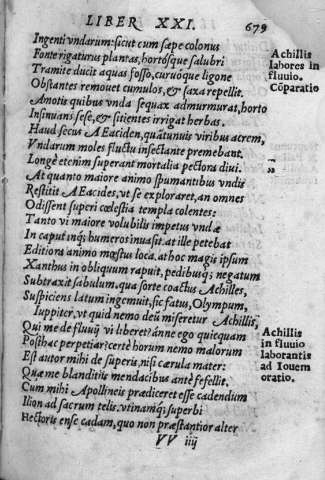 LIBER XXI. 679
Ingenti vndarum: sicut cum sæpe colonus
Fonte rigaturus plantas, hortósque salubri
Tramite ducit aquas fosso, curuóque ligone
Obstantes remouet cumulos, & saxa repellit.
Amotis quibus vnda sequax admurmurat, horto
Insinuans sese, & sitientes irrigat herbas.
Haud secus AEaciden, quātunuis viribus acrem,
Vndarum moles fluctu insectante premebant.
Longè etenim superant mortalia pectora diui.
At quanto maiore animo spumantibus vndis
Restitit AEacides, vt se exploraret, an omnes
Odissent superi cœlestia templa colentes:
Tanto vi maiore volubilis impetus vndæ
In caput inq; humeros inuasit. at ille petebat
Editiora animo mœstus loca. at hoc magis ipsum
Xanthus in obliquum rapuit, pedibusq; negatum
Subtraxit sabulum. qua sorte coactus Achilles,
Suspiciens latum ingemuit, sic fatus, Olympum,
Iuppiter, vt quid nemo deũ miseretur Achillis,
Qui me de fluuij vi liberet? ánne ego quicquam
Posthac perpetiar? certè horum nemo malorum
Est autor mihi de superis, nisi cærula mater:
Quæ me blanditiis mendacibus antè fefellit.
Cum mihi Apollineis prædiceret esse cadendum
Ilion ad sacrum telis. vtinamq; superbi
Hectoris ense cadam, quo non præstantior alter
VV iiij
Achillis
labores in
fluuio.
Cōparatio
„
„
Achillis
in fluuio
laborantis
ad Iouem
oratio.